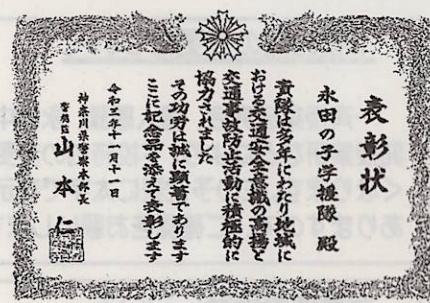 表彰状
永田の子学援隊 殿
貴隊は多年にわたり地域に
おける交通安全意識の高揚と
交通事故防止活動に積極的に
協力されました
その功労は誠に顕著であります
ここに記念品を添えて表彰します
令和三年十一月十一日
神奈川県警察本部長
警視監 山本仁